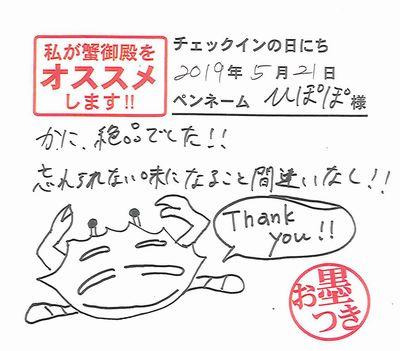 私が蟹御殿を
オススメ
します!!
チェックインの日にち
2019年5月21日
ペンネーム ひぽぽ様
かに、絶品でした!!
忘れられない味になること間違いなし!!
Thank
you!!
お墨つき